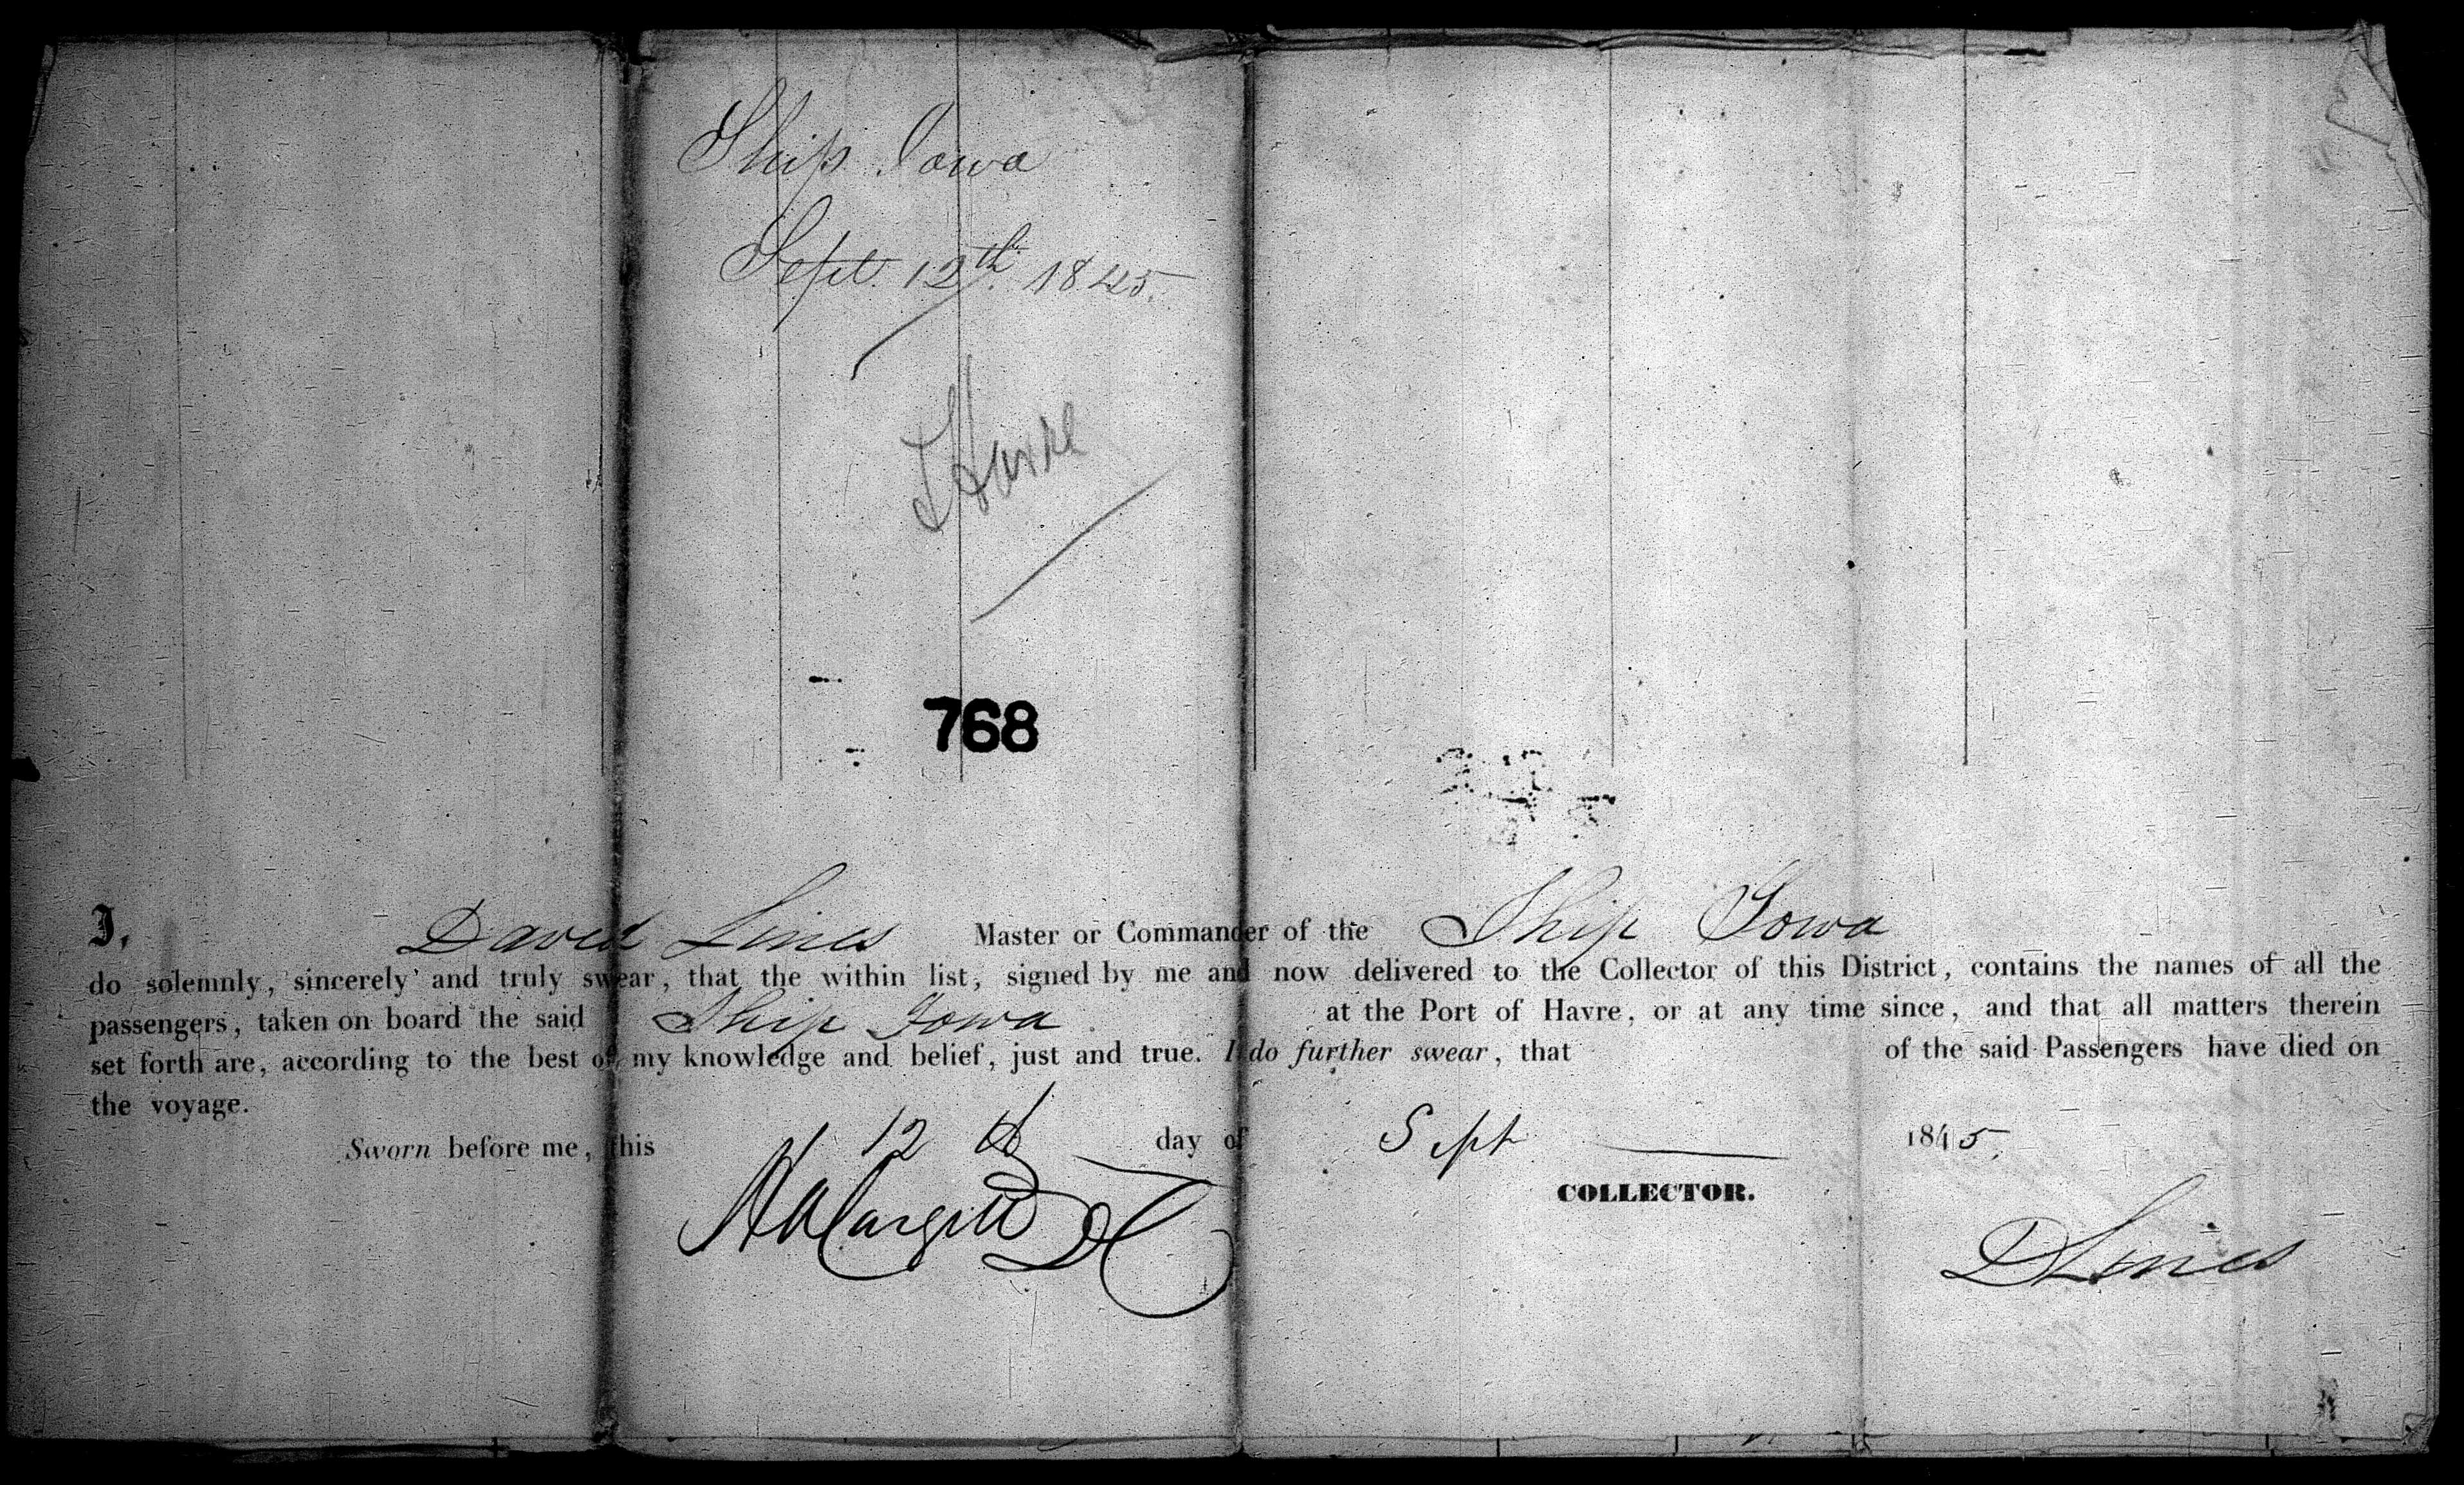 Ship Iowa
Sept. 12th. 1845.
Havre
768
I, David Lines Master or Commander of the Ship Iowa
do solemnly, sincerely and truly swear, that the within list, signed by me and now delivered to the Collector of this District, contains the names of all the
passengers, taken on board the said Ship Iowa at the Port of Havre, or at any time since, and that all matters therein
set forth are, according to the best of my knowledge and belief, just and true. I do further swear, that of the said Passengers have died on
the voyage.
Sworn before me, this 12 th day of Sept 1845.
COLLECTOR.
Cargill DC
D Lines